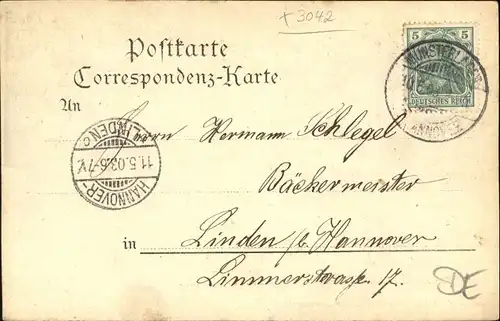 + 3042
5
DEUTSCHES REICH
Postkarte
Correspondenz-Karte
An
Herrn Hermann Schlegel
LINDEN
11.5.03.6-7V.
HANNOVER-
Bäckermeister
in Linden b/ Hannover
Limmerstrasse 17.
DE